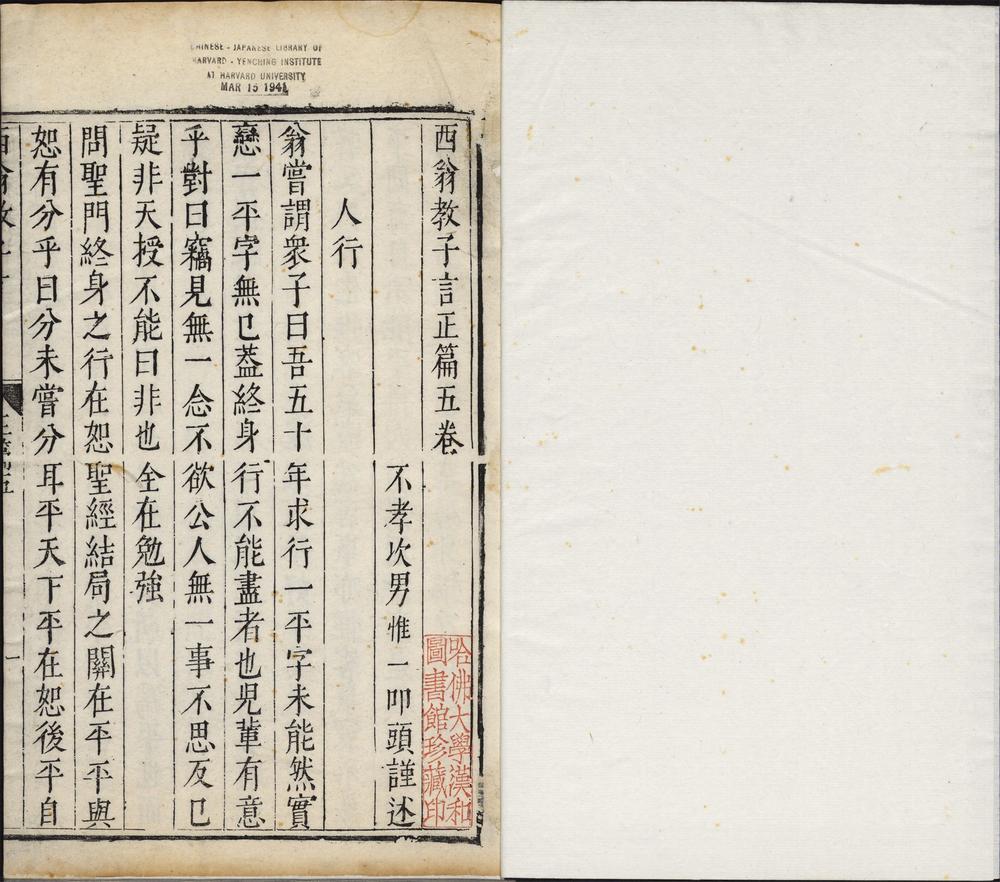 CHINESE - JAPANESE LIBRARY OF
HARVARD - YENCHING INSTITUTE
AT HARVARD UNIVERSITY
MAR 15 1941
西翁教子言正篇五卷
哈佛大學漢和
圖書館珍藏印
不孝次男惟一叩頭謹述
人行
翁嘗謂衆子曰吾五十年求行一平字未能然實
戀一平字無已葢終身行不能盡者也兒輩有意
乎對曰竊見無一念不欲公人無一事不思反已
疑非天授不能曰非也全在勉強
問聖門終身之行在恕聖經結局之關在平平與
恕有分乎曰分未嘗分耳平天下平在恕後平自
西翁教子言